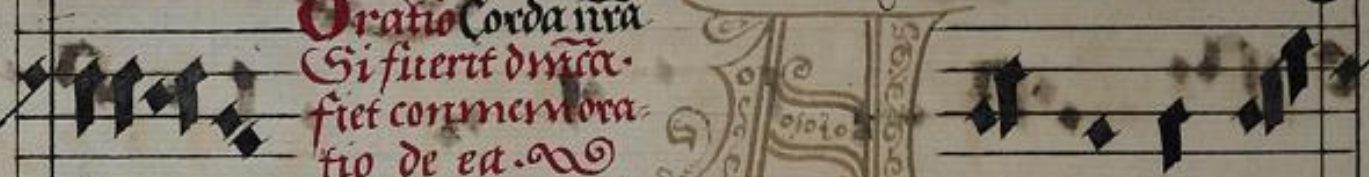 Oratio Corda nr̄a
Si fuerit dn̄ica.
fiet conmemora=
tio de ea.
A